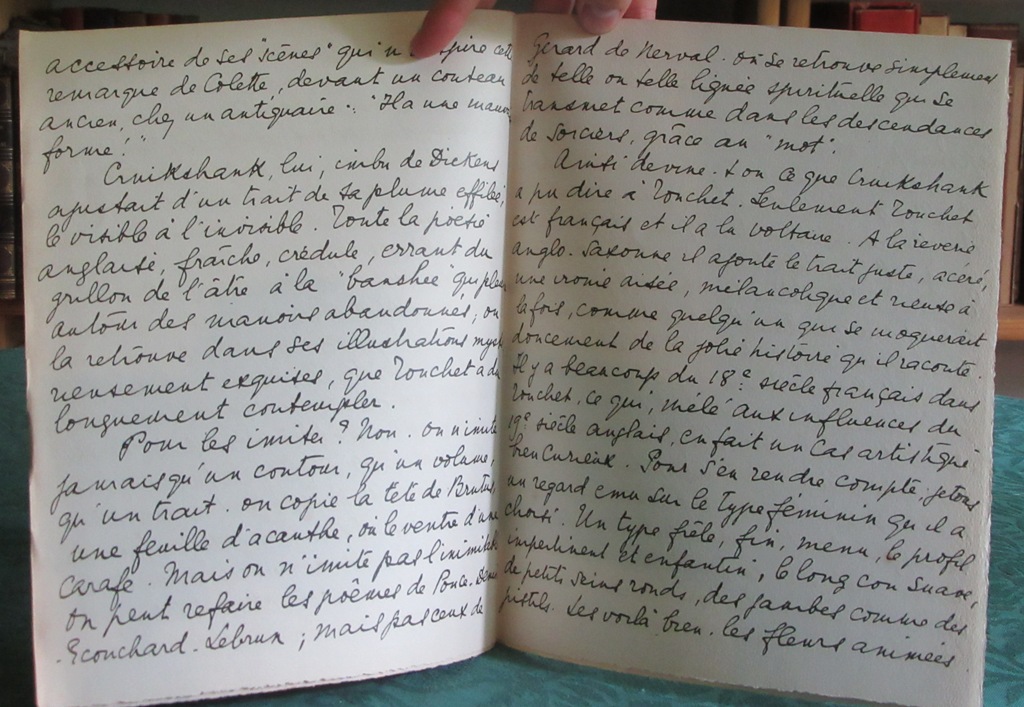 accessoire de ses "scènes" qui n'inspire cett
remarque de Colette, devant un couteau
ancien, chez un antiquaire : "Il a une mauv
forme!"
Cruikshank, lui, imbu de Dickens
ajustait d'un trait de sa plume effilée,
le visible à l'invisible. Toute la poésie
anglaise, fraîche, crédule, errant du
grillon de l'âtre à la "banshee qui pleu
autour des manoirs abandonnés, on
la retrouve dans ses illustrations mysté
rieusement exquises, que Touchet a dû
longuement contempler.
Pour les imiter? Non. On n'imite
jamais qu'un contour, qu'un volume,
qu'un trait. On copie la tête de Brutus,
une feuille d'acanthe, ou le ventre d'une
carafe. Mais on n'imite pas l'inimitable
On peut refaire les poèmes de Ponce-Denis
-Ecouchard-Lebrun ; mais pas ceux de
Gérard de Nerval. On se retrouve simplement
de telle ou telle lignée spirituelle qui se
transmet comme dans les descendances
de sorciers, grâce au "mot".
Ainsi devine-t-on ce que Cruikshank
a pu dire à Touchet. Seulement Touchet
est français et il a lu Voltaire. A la rêverie
anglo-saxonne il ajoute le trait juste, acéré,
une ironie aisée, mélancolique et rieuse à
la fois, comme quelqu'un qui se moquerait
doucement de la jolie histoire qu'il raconte.
Il y a beaucoup du 18e siècle français dans
Touchet, ce qui, mêlé aux influences du
19e siècle anglais, en fait un cas artistique
bien curieux. Pour s'en rendre compte, jetons
un regard ému sur le type féminin qu'il a
choisi. Un type frêle, fin, menu, le profil
impertinent et enfantin, le long cou suave,
de petits seins ronds, des jambes comme des
pistils. Les voilà bien, les fleurs animées